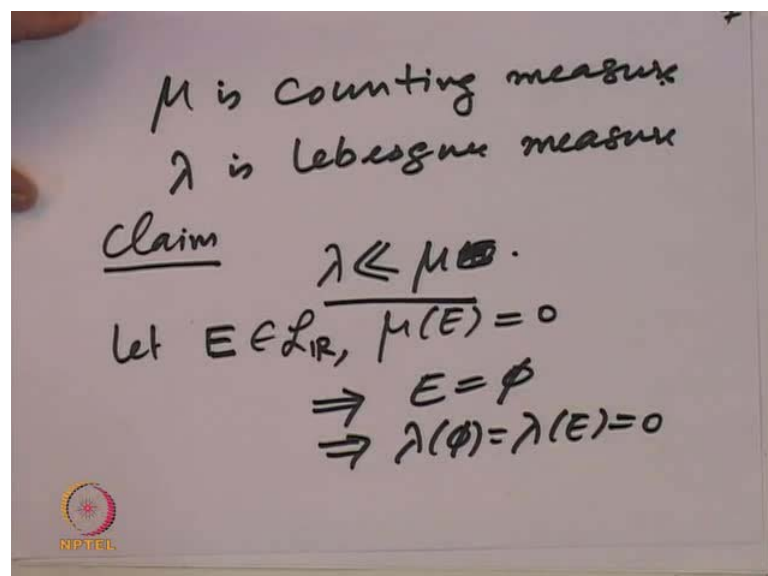 μ is counting measure
λ is Lebesgue measure
Claim λ ≪ μ .
Let E ∈ 𝓛_ℝ, μ(E) = 0
⇒ E = ϕ
⇒ λ(ϕ) = λ(E) = 0
NPTEL